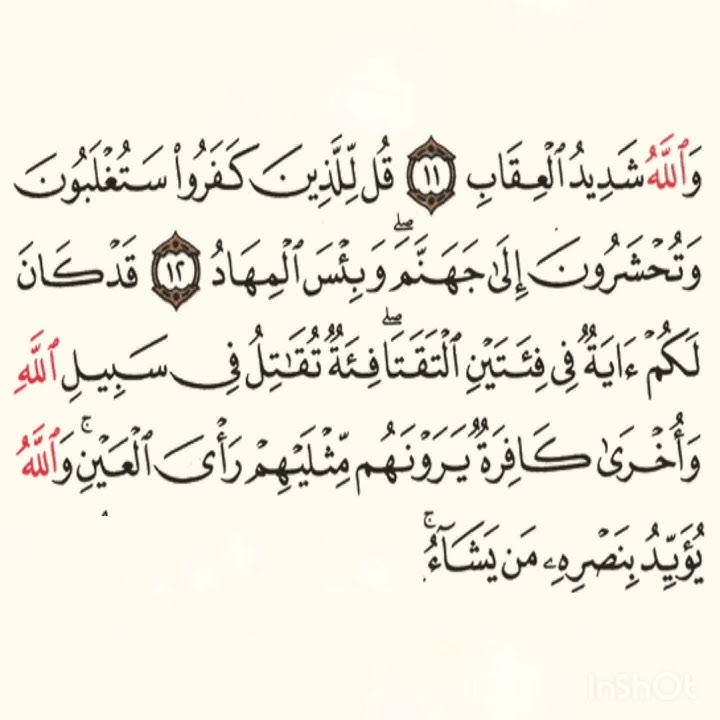 وَٱللَّهُ شَدِيدُ ٱلْعِقَابِ ١١ قُل لِّلَّذِينَ كَفَرُوا۟ سَتُغْلَبُونَ
وَتُحْشَرُونَ إِلَىٰ جَهَنَّمَ ۖ وَبِئْسَ ٱلْمِهَادُ ١٢ قَدْ كَانَ
لَكُمْ ءَايَةٌ فِى فِئَتَيْنِ ٱلْتَقَتَا ۖ فِئَةٌ تُقَـٰتِلُ فِى سَبِيلِ ٱللَّهِ
وَأُخْرَىٰ كَافِرَةٌ يَرَوْنَهُم مِّثْلَيْهِمْ رَأْىَ ٱلْعَيْنِ ۚ وَٱللَّهُ
يُؤَيِّدُ بِنَصْرِهِۦ مَن يَشَآءُ ۚ
InShOt